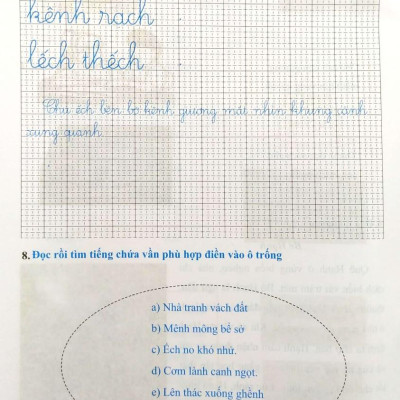 kênh rạch
lếch thếch
Chú ếch bên bờ kênh gương mái nhìn khung cảnh
xung quanh.
8. Đọc rồi tìm tiếng chứa vần phù hợp điền vào ô trống
a) Nhà tranh vách đất
b) Mênh mông bể sở
c) Ếch no khó nhử.
d) Cơm lành canh ngọt.
e) Lên thác xuống ghềnh